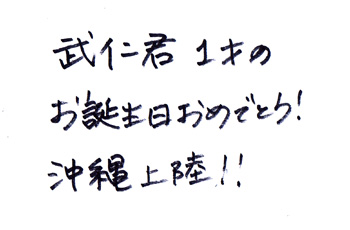 武仁君 1才の
お誕生日おめでとう!
沖縄上陸!!